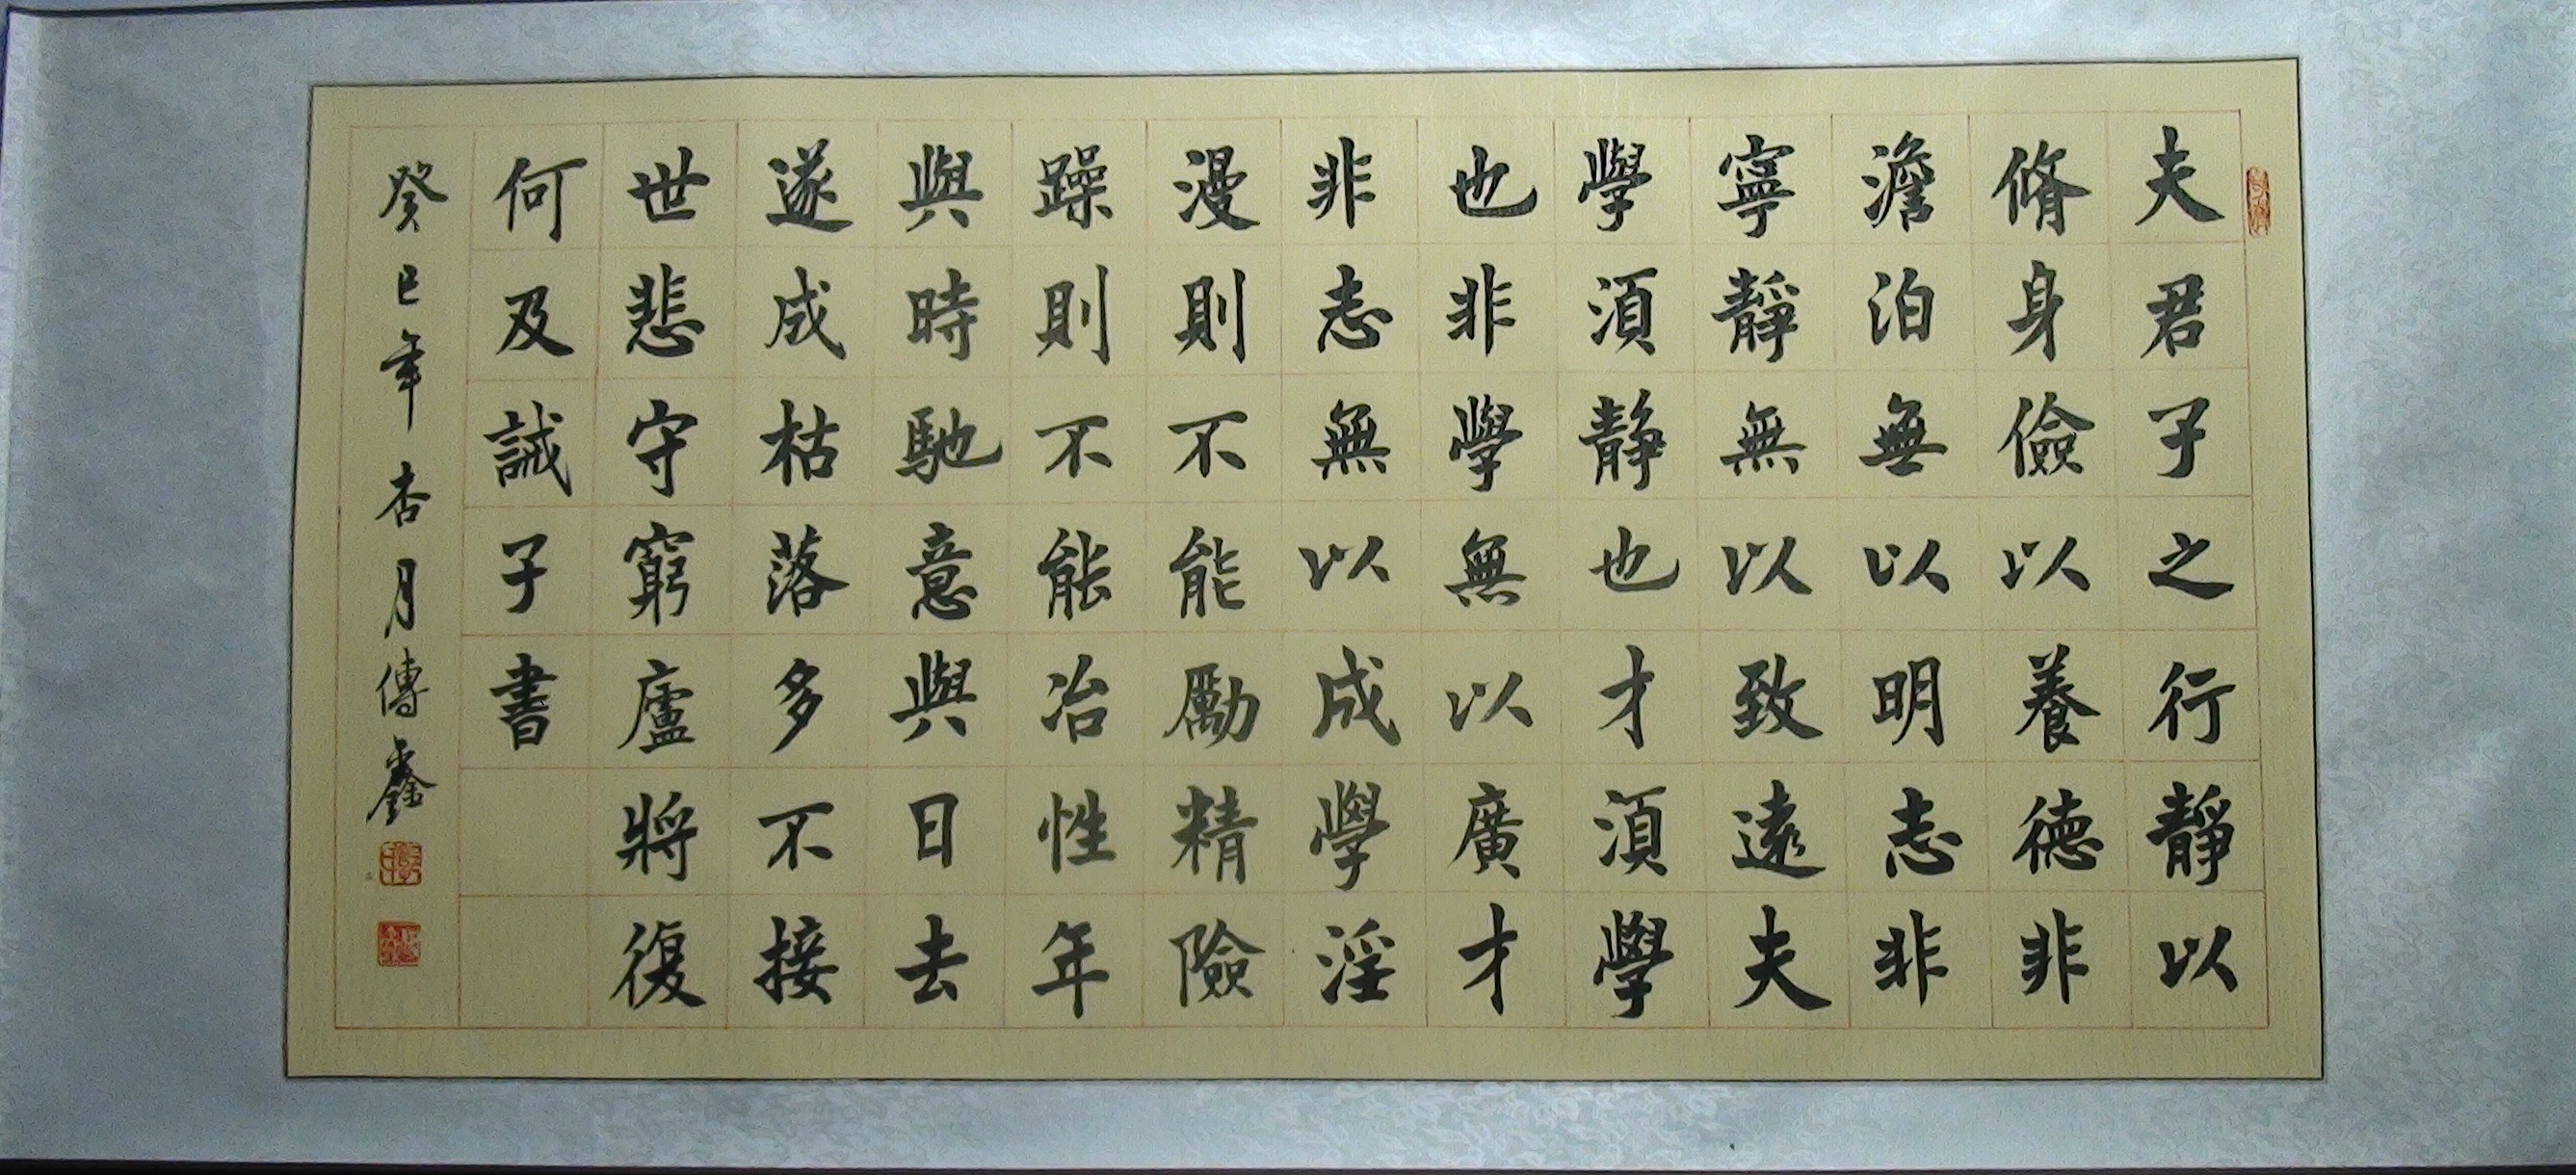 夫君子之行靜以
脩身儉以養德非
澹泊無以明志非
寧靜無以致遠夫
學須靜也才須學
也非學無以廣才
非志無以成學淫
漫則不能勵精險
躁則不能冶性年
與時馳意與日去
遂成枯落多不接
世悲守窮廬將復
何及誡子書
癸巳年杏月傳鑫